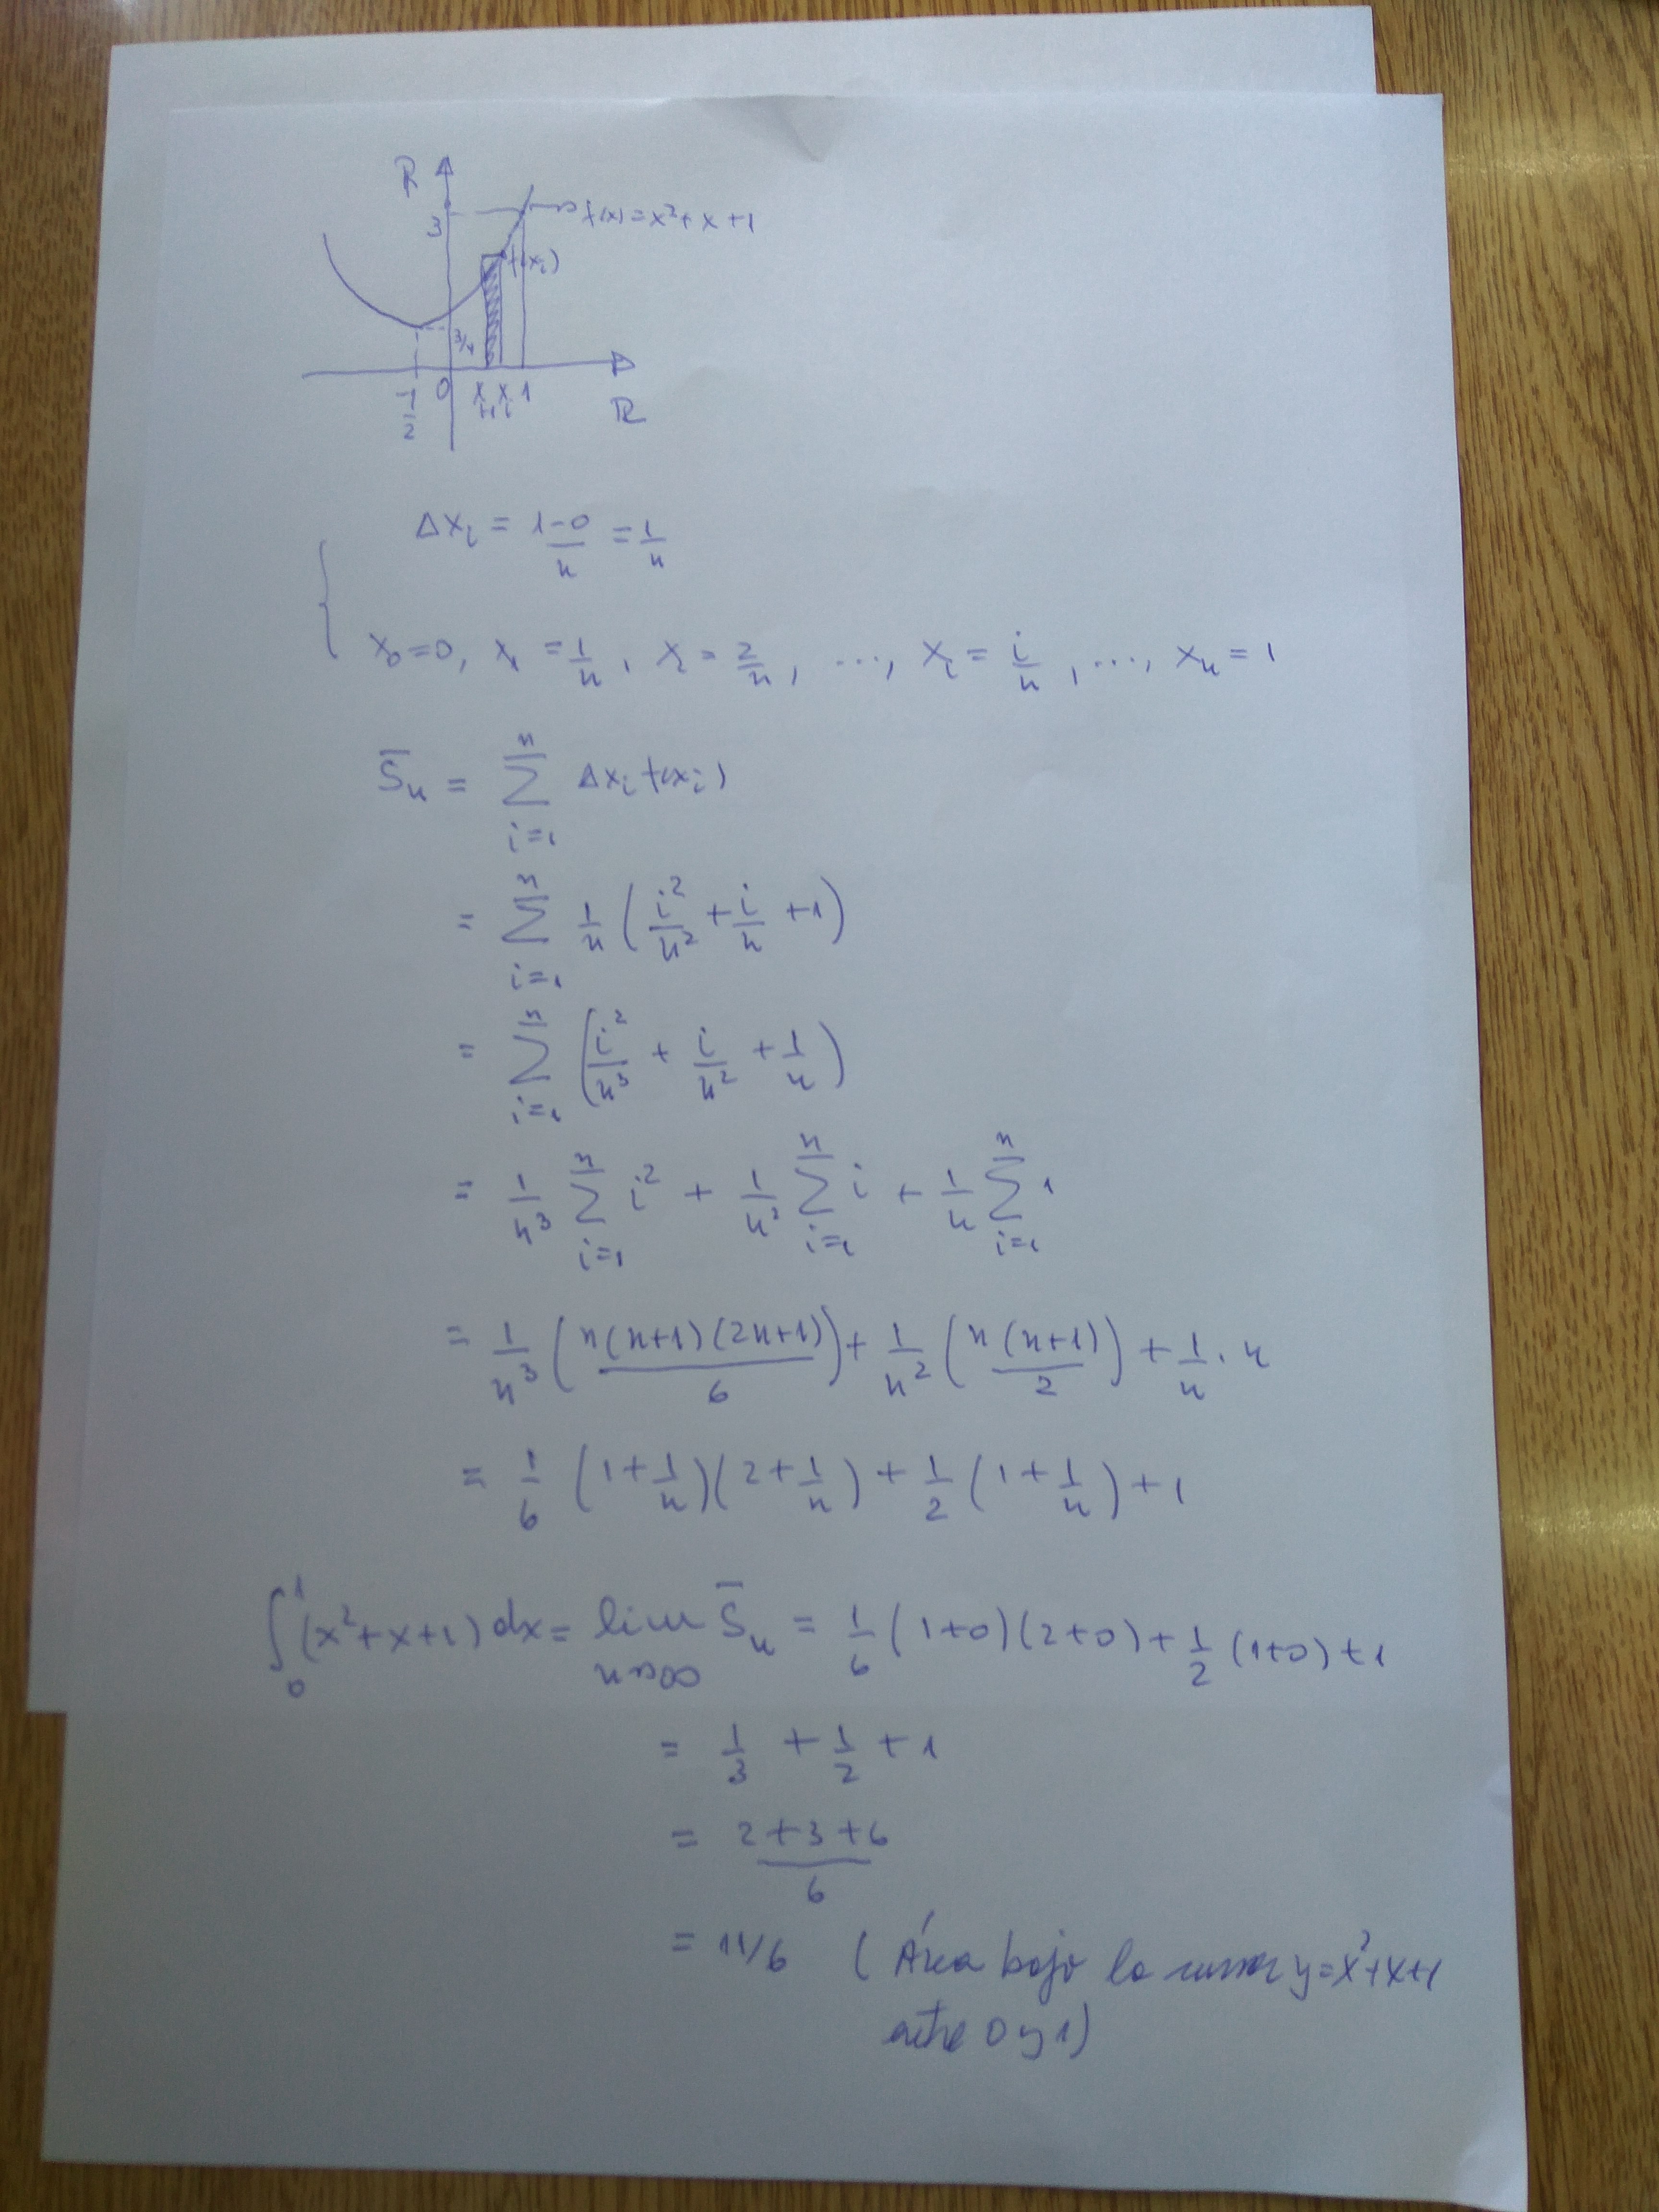 R
3
f(x)=x²+x+1
f(xᵢ)
3/4
-1/2 0 xᵢ₋₁ xᵢ 1
R
Δxᵢ = (1-0)/n = 1/n
x₀=0, x₁ = 1/n, x₂ = 2/n, ..., xᵢ = i/n, ..., xₙ = 1
S̅ₙ = ∑ᵢ₌₁ⁿ Δxᵢ f(xᵢ)
= ∑ᵢ₌₁ⁿ 1/n (i²/n² + i/n + 1)
= ∑ᵢ₌₁ⁿ (i²/n³ + i/n² + 1/n)
= 1/n³ ∑ᵢ₌₁ⁿ i² + 1/n² ∑ᵢ₌₁ⁿ i + 1/n ∑ᵢ₌₁ⁿ 1
= 1/n³ (n(n+1)(2n+1)/6) + 1/n² (n(n+1)/2) + 1/n · n
= 1/6 (1+1/n)(2+1/n) + 1/2 (1+1/n) + 1
∫₀¹ (x²+x+1) dx = lim n→∞ S̅ₙ = 1/6 (1+0)(2+0) + 1/2 (1+0) + 1
= 1/3 + 1/2 + 1
= (2+3+6)/6
= 11/6 (Área bajo la curva y=x²+x+1
entre 0 y 1)